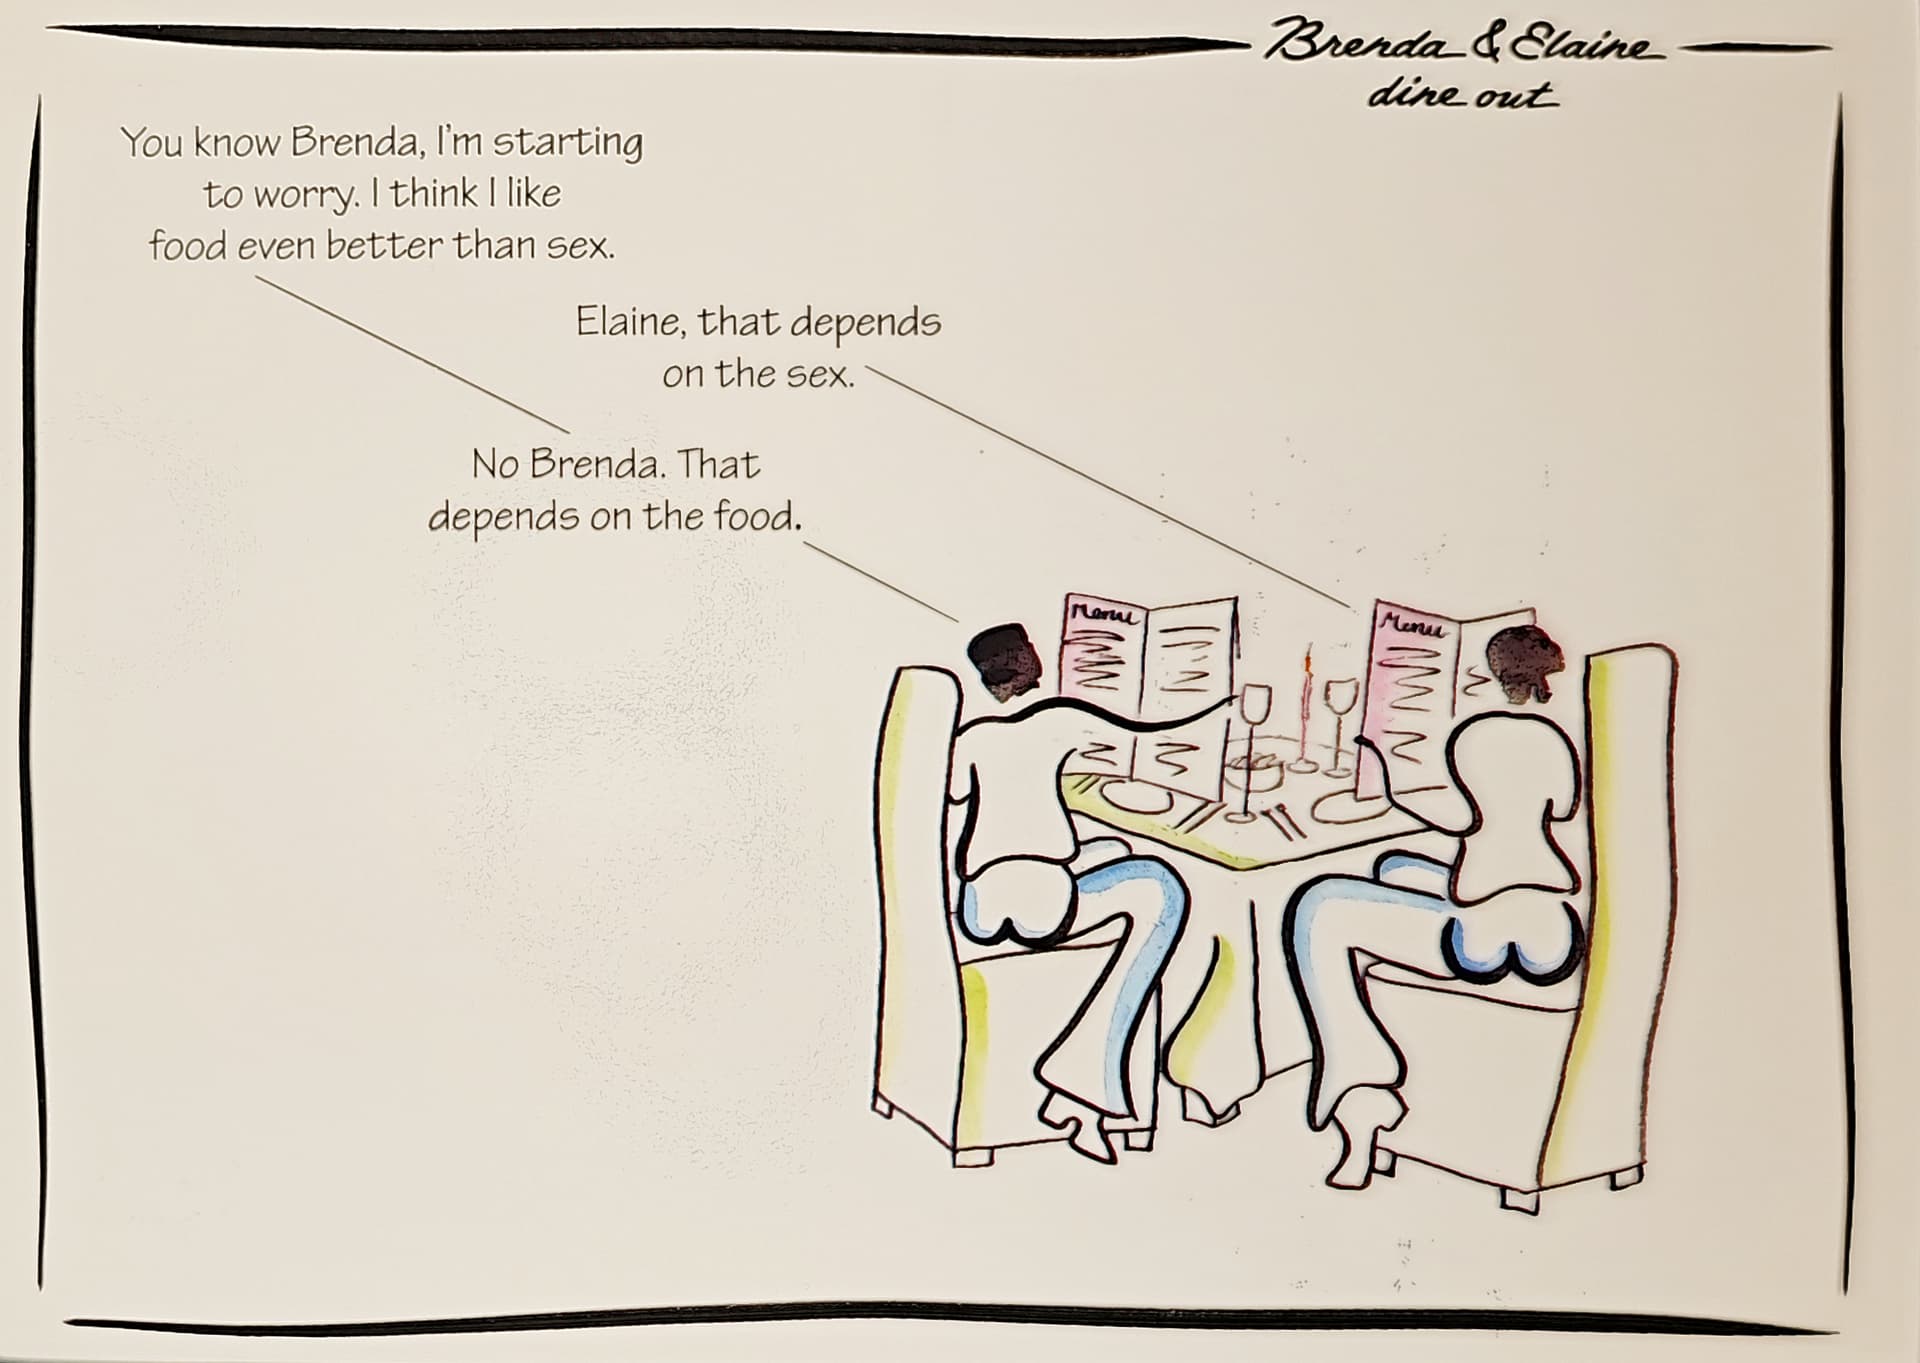 Brenda & Elaine
dine out
You know Brenda, I'm starting
to worry. I think I like
food even better than sex.
Elaine, that depends
on the sex.
No Brenda. That
depends on the food.
Menu
Menu